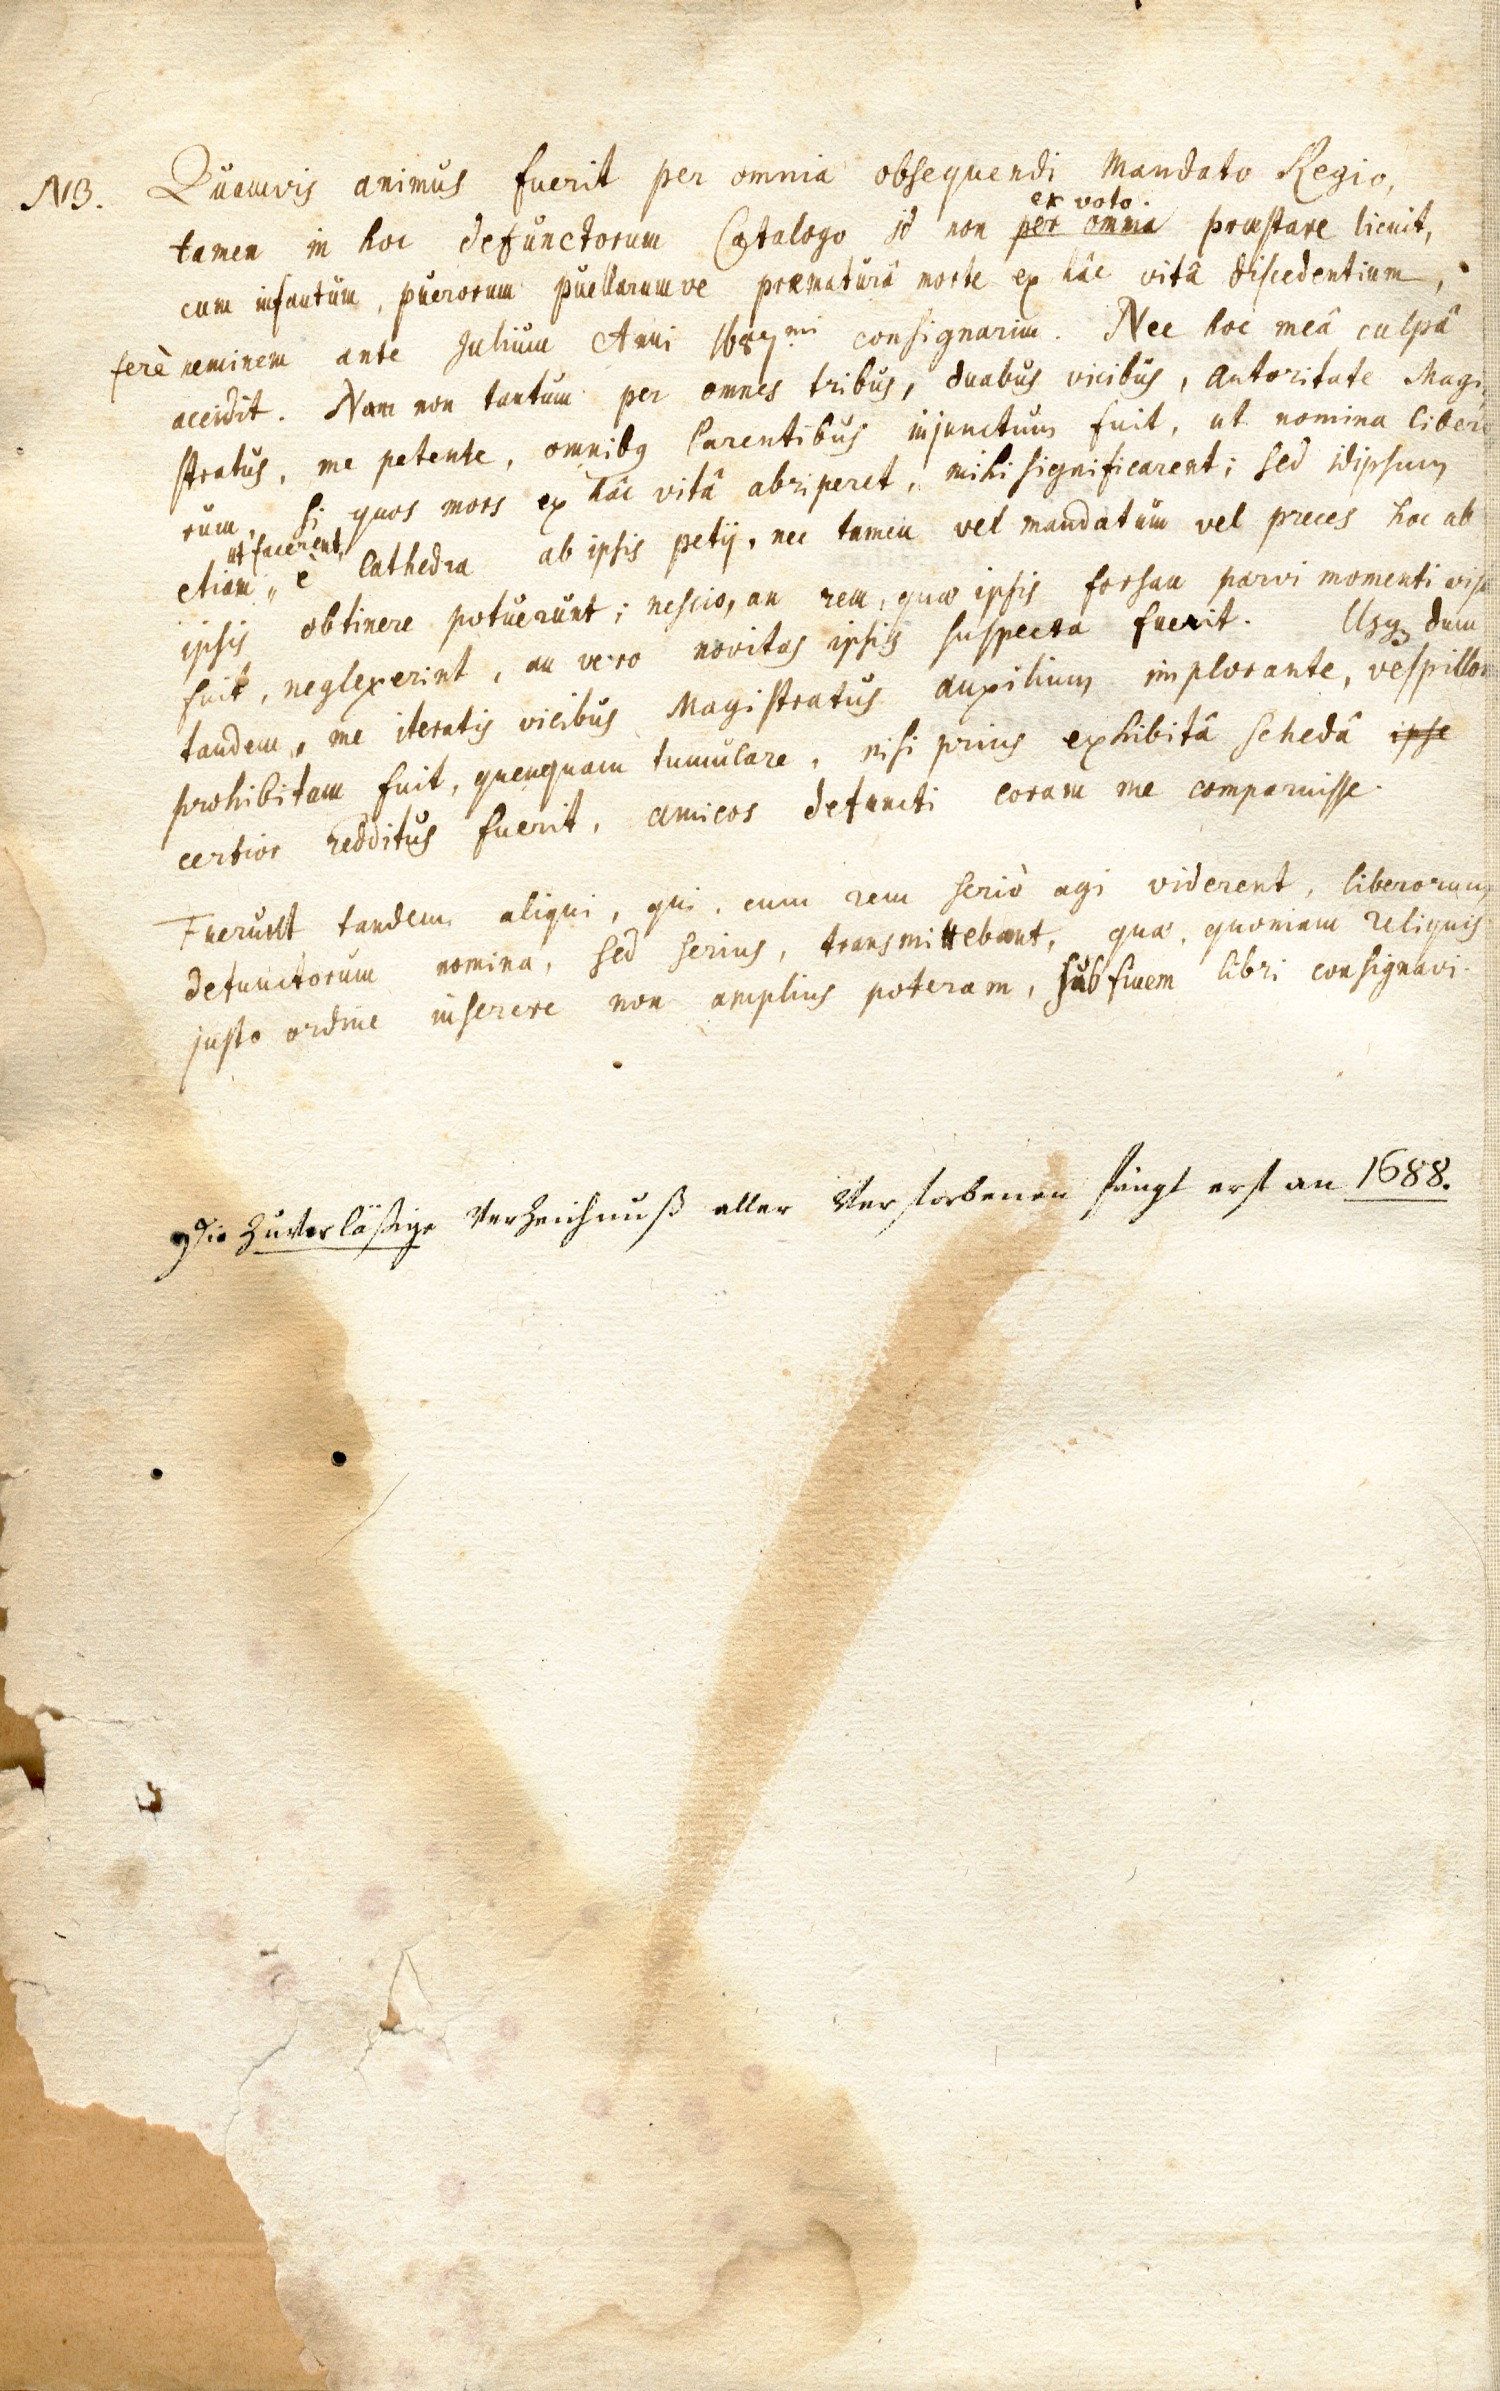 NB. Quamvis animus fuerit per omnia obsequendi Mandato Regio,
ex voto.
tamen in hoc defunctorum Catalogo id non per omnia præstare licuit,
cum infantûm, puerorum puellarumve præmaturâ morte ex hâc vitâ discedentium,
ferè neminem ante Julium Anni 1687mi consignarim. Nec hoc meâ culpâ
accidit. Nam non tantum per omnes tribus, duabus vicibus, autoritate Magi
stratus, me petente, omnibq Parentibus injunctum fuit, ut nomina libero
rum, si quos mors ex hâc vitâ abriperet, mihi significarent; sed idipsum
ut facerent,
etiam è Cathedra ab ipsis petij, nec tamen vel mandatum vel preces hoc ab
ipsis obtinere potuerunt; nescio, an rem, quæ ipsis forsan parvi momenti visa
fuit, neglexerint, an vero novitas ipsis suspecta fuerit. Usq dum
tandem, me iteratis vicibus Magistratus auxilium implorante, vespillon
prohibitum fuit, quenquam tumulare, nisi prius exhibitâ schedâ ipse
certior redditus fuerit, amicos defuncti coram me comparuisse.
Fuerunt tandem aliqui, qui, cum rem seriò agi viderent, liberorum
defunctorum nomina, sed serius, transmittebant, quæ, quoniam reliquis
justo ordine inserere non amplius poteram, sub finem libri consignavi.
Die Zuverläßige Verzeichnuß aller Verstorbenen fängt erst an 1688.